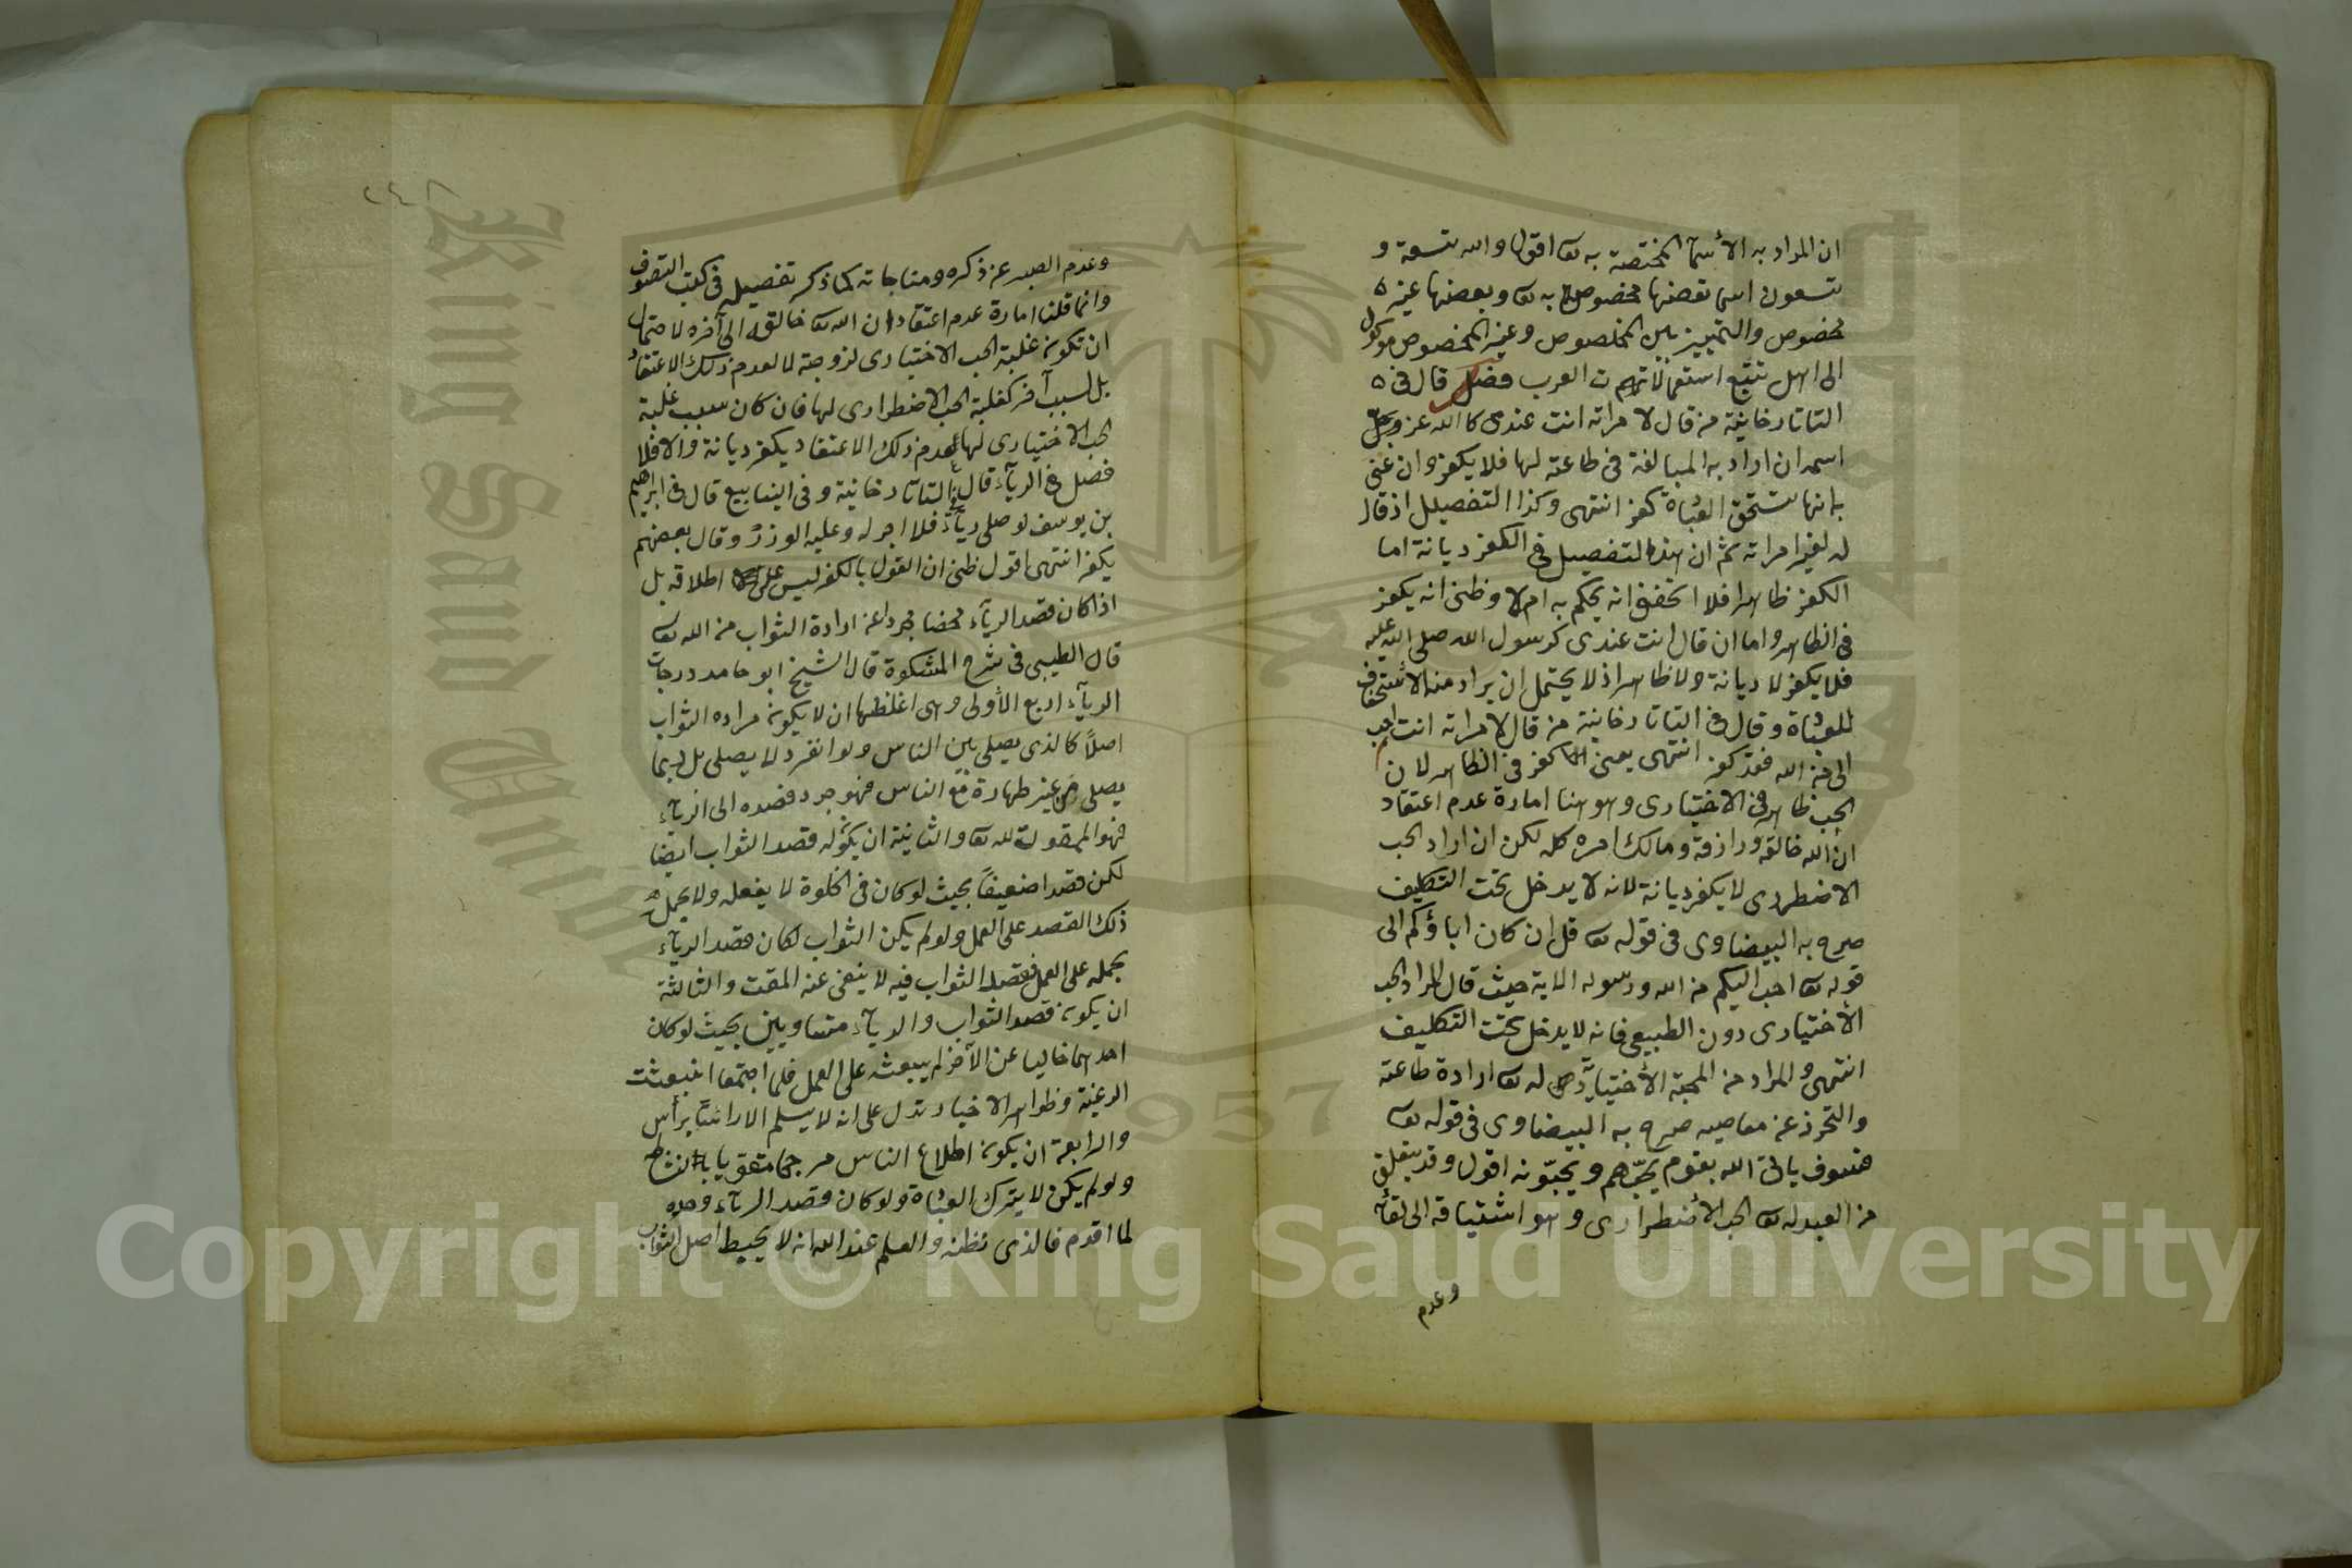 ان المراد به الأسمآ المختصة به تعا اقول والله تسعة و
تسعون اسما بعضها مخصوص به تعا وبعضها غير
مخصوص والتمييز بين المخصوص وغير المخصوص موكول
الى اهل تتبع استعمالات العرب فصل قال في
التاتارخانية من قال لامراته انت عندى كالله عز وجل
اسمه ان اراد به المبالغة في طاعته لها فلا يكفر وان عنى
بانها تستحق العبادة كفر انتهى وكذا التفصيل اذ قال
له لغير امراته ثم ان هذا التفصيل في الكفر ديانة اما
الكفر ظاهرا فلا اتحقق انه يحكم به ام لا وظنى انه يكفر
في الظاهر واما ان قال انت عندى كرسول الله صلى الله عليه
فلا يكفر لا ديانة ولا ظاهرا اذ لا يحتمل ان يراد منه الاستحقاق
للعبادة وقال في التاتارخانية من قال لامراته انت احب
الى من الله فقد كفر انتهى يعنى كفر في الظاهر لان
الحب ظاهر في الاختيارى وهو هنا امارة عدم اعتقاد
ان الله خالقه ورازقه ومالك امره كله لكن ان اراد الحب
الاضطرارى لا يكفر ديانة لانه لا يدخل تحت التكليف
صرح به البيضاوى في قوله تعا قل ان كان اباؤكم الى
قوله تعا احب اليكم من الله ورسوله الاية حيث قال المراد الحب
الأختيارى دون الطبيعى فانه لا يدخل تحت التكليف
انتهى والمراد من المحبة الأختيارية له تعا ارادة طاعته
والتحرز عن معاصيه صرح به البيضاوى في قوله تعا
فسوف ياتى الله بقوم يحبّهم ويحبّونه اقول وقد يتعلق
من العبد له تعا الحب الأضطرارى وهو اشتياقه الى لقائه
وعدم
٢٤٨
وعدم الصبر عن ذكره ومناجاته كما ذكر تفصيله في كتب التصوف
وانما قلنا امارة عدم اعتقاد ان الله تعا خالقه الى آخره لاحتمال
ان تكون غلبة الحب الاختيارى لزوجته لا لعدم ذلك الاعتقاد
بل لسبب آخر كغلبة الحب الاضطرارى لها فان كان سبب غلبة
الحب الاختيارى لها عدم ذلك الاعتقاد يكفر ديانة والا فلا
فصل في الريآء قال في التاتارخانية وفى الينابيع قال في ابراهيم
بن يوسف لو صلى ريآء فلا اجر له وعليه الوزر وقال بعضهم
يكفر انتهى اقول ظنى ان القول بالكفر ليس على اطلاقه بل
اذا كان قصد الريآء محضا مجردا عن ارادة الثواب من الله تعا
قال الطيبى في شرح المشكوة قال الشيخ ابو حامد درجات
الريآء اربع الأولى وهى اغلظها ان لا يكون مراده الثواب
اصلاً كالذى يصلى بين الناس ولو انفرد لا يصلى بل ربما
يصلى من غير طهارة مع الناس فهو جرد قصده الى الريآء
فهو الممقوت لله تعا والثانية ان يكون له قصد الثواب ايضا
لكن قصدا ضعيفاً بحيث لو كان في الخلوة لا يفعله ولا يحمله
ذلك القصد على العمل ولو لم يكن الثواب لكان قصد الريآء
يحمله على العمل فقصد الثواب فيه لا ينفى عنه المقت والثالثة
ان يكون قصد الثواب والريآء متساويين بحيث لو كان
احدهما خاليا عن الآخر لم يبعثه على العمل فلما اجتمعا انبعثت
الرغبة وظواهر الاخبار تدل على انه لا يسلم الا راسًا برأس
والرابعة ان يكون اطلاع الناس مرجحا مقويا لنشاطه
ولو لم يكن لا يترك العبادة ولو كان قصد الريآء وحده
لما اقدم فالذى نظنه والعلم عند الله انه لا يحبط اصل الثواب
King Saud University
1957
Copyright © King Saud University